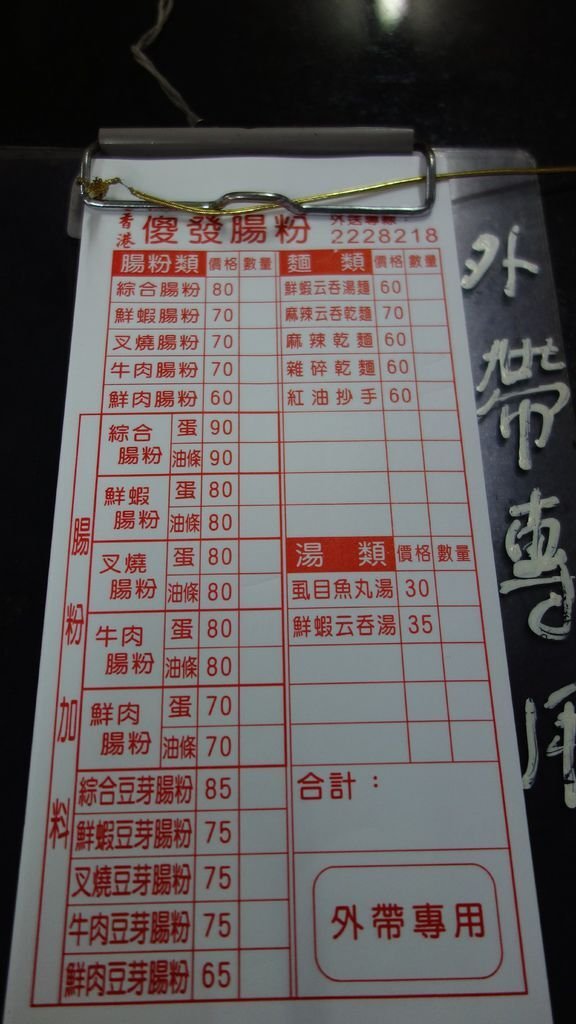 香港 傻發腸粉 外送專線
2228218
腸粉類 價格 數量
綜合腸粉 80
鮮蝦腸粉 70
叉燒腸粉 70
牛肉腸粉 70
鮮肉腸粉 60
腸粉加料
綜合腸粉 蛋 90
油條 90
鮮蝦腸粉 蛋 80
油條 80
叉燒腸粉 蛋 80
油條 80
牛肉腸粉 蛋 80
油條 80
鮮肉腸粉 蛋 70
油條 70
綜合豆芽腸粉 85
鮮蝦豆芽腸粉 75
叉燒豆芽腸粉 75
牛肉豆芽腸粉 75
鮮肉豆芽腸粉 65
麵類 價格 數量
鮮蝦云吞湯麵 60
麻辣云吞乾麵 70
麻辣乾麵 60
雜碎乾麵 60
紅油抄手 60
湯類 價格 數量
虱目魚丸湯 30
鮮蝦云吞湯 35
合計：
外帶專用
外帶專用